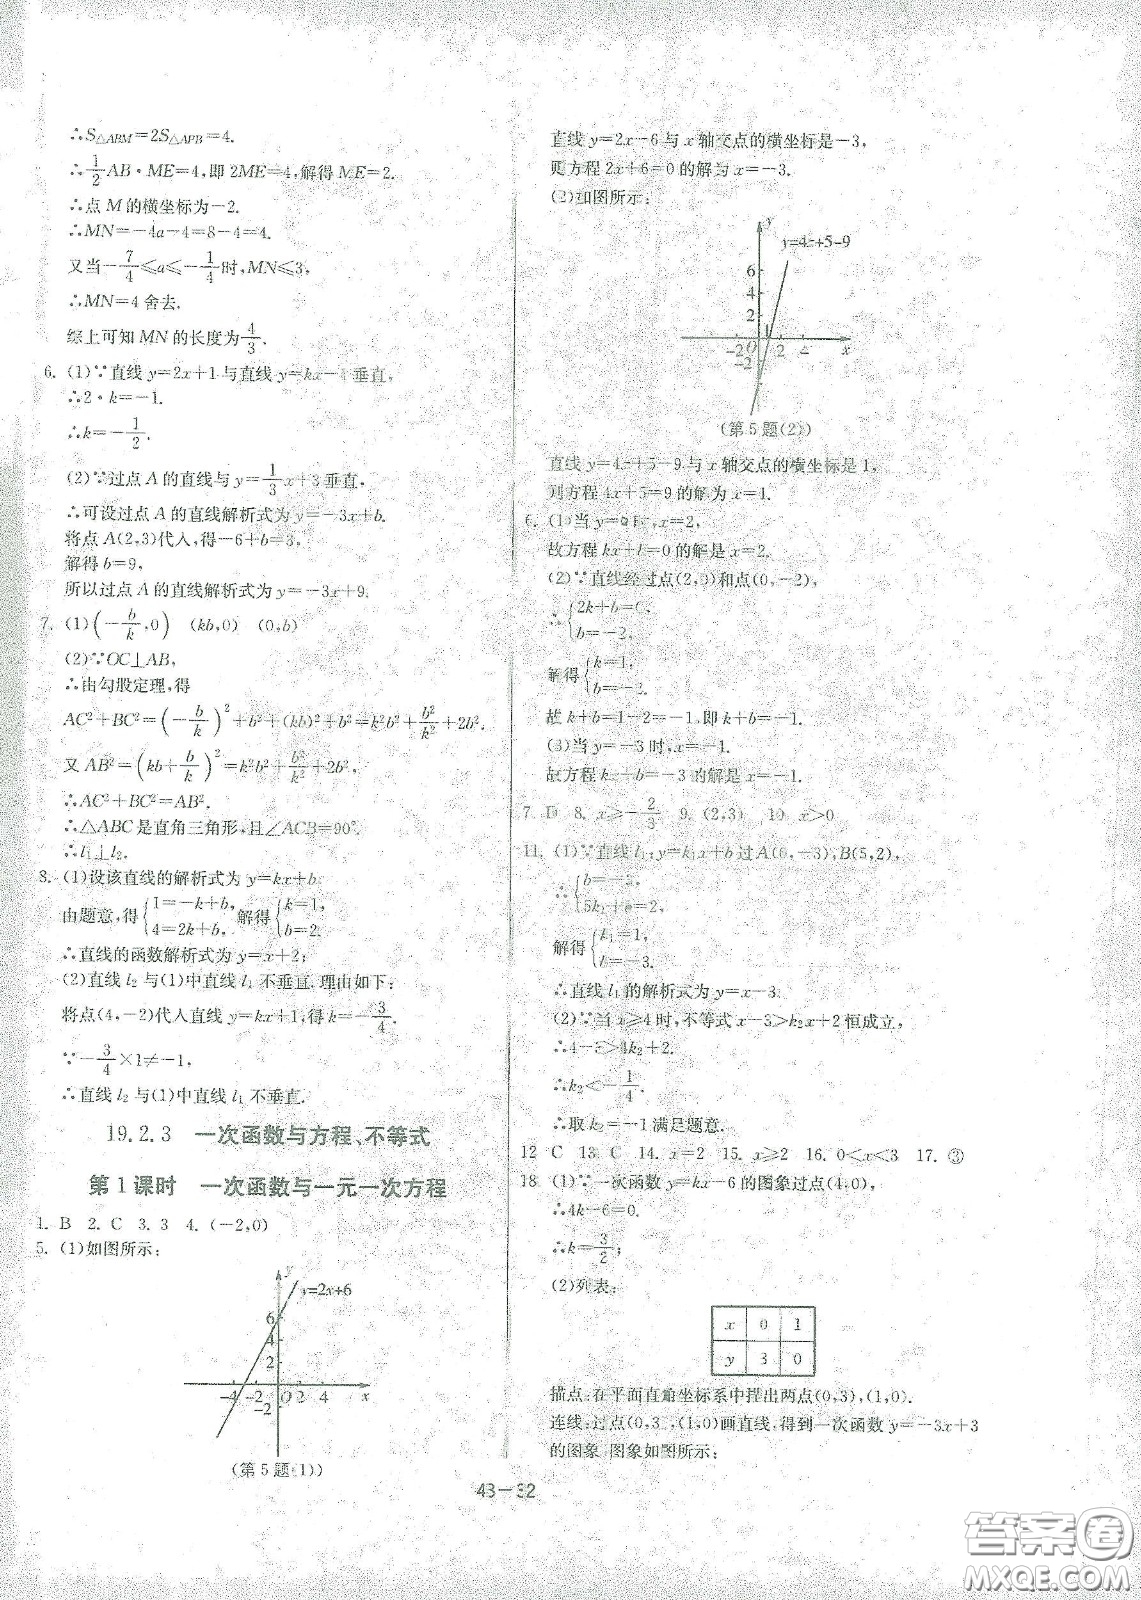 ∴S△ABM=2S△APB=4.
∴1/2 AB·ME=4,即 2ME=4,解得 ME=2.
∴点 M 的横坐标为-2.
∴MN=-4a-4=8-4=4.
又当-7/4≤a≤-1/4时,MN≤3,
∴MN=4 舍去.
综上可知 MN 的长度为4/3.
6. (1)∵直线 y=2x+1 与直线 y=kx- 垂直,
∴2·k=-1.
∴k=-1/2.
(2)∵过点 A 的直线与 y=1/3x+3 垂直,
∴可设过点 A 的直线解析式为 y=-3x+b.
将点 A(2,3)代入,得-6+b=3,
解得 b=9,
所以过点 A 的直线解析式为 y=-3x+9.
7. (1)(-b/k,0) (kb,0) (0,b)
(2)∵OC⊥AB,
∴由勾股定理,得
AC²+BC²=(-b/k)²+b²+(kb)²+b²=k²b²+b²/k²+2b².
又 AB²=(kb+b/k)²=k²b²+b²/k²+2b²,
∴AC²+BC²=AB².
∴△ABC 是直角三角形,且∠ACB=90°.
∴l₁⊥l₂.
8. (1)设该直线的解析式为 y=kx+b.
由题意,得{1=-k+b, 4=2k+b, 解得{k=1, b=2.
∴直线的函数解析式为 y=x+2;
(2)直线 l₂ 与(1)中直线 l₁ 不垂直.理由如下:
将点(4,-2)代入直线 y=kx+1,得 k=-3/4.
∵-3/4×1≠-1,
∴直线 l₂ 与(1)中直线 l₁ 不垂直.
19.2.3 一次函数与方程、不等式
第 1 课时 一次函数与一元一次方程
1. B 2. C 3. 3 4. (-2,0)
5. (1)如图所示:
y
y=2x+6
6
4
2
-4 -2 O 2 4 x
-2
(第 5 题(1))
直线 y=2x-6 与 x 轴交点的横坐标是-3,
则方程 2x+6=0 的解为 x=-3.
(2)如图所示:
y
y=4x+5-9
6
4
2
-2 O 2 4 x
-2
(第 5 题(2))
直线 y=4x+5-9 与 x 轴交点的横坐标是 1,
则方程 4x+5=9 的解为 x=1.
6. (1)当 y=0时,x=2,
故方程 kx+b=0 的解是 x=2.
(2)∵直线经过点(2,0)和点(0,-2),
∴{2k+b=0, b=-2,
解得{k=1, b=-2.
故 k+b=1-2=-1,即 k+b=-1.
(3)当 y=-3 时,x=-1.
故方程 kx+b=-3 的解是 x=-1.
7. D 8. x≥-2/3 9. (2,3) 10. x>0
11. (1)∵直线 l₁:y=k₁x+b 过 A(0,-3),B(5,2),
∴{b=-3, 5k₁+b=2,
解得{k₁=1, b=-3.
∴直线 l₁ 的解析式为 y=x-3.
(2)∵当 x≥4 时,不等式 x-3>k₂x+2 恒成立,
∴4-3>4k₂+2.
∴k₂<-1/4.
∴取 k₂=-1 满足题意.
12 C 13. C 14. x=2 15. x≥2 16. 0<x<3 17. ③
18 (1)∵一次函数 y=kx-6 的图象过点(4,0),
∴4k-6=0.
∴k=3/2;
(2)列表:
x 0 1
y 3 0
描点:在平面直角坐标系中描出两点(0,3),(1,0).
连线:过点(0,3 ,(1,0)画直线,得到一次函数 y=-3x+3
的图象.图象如图所示:
43-32
答案卷
MXQE.COM